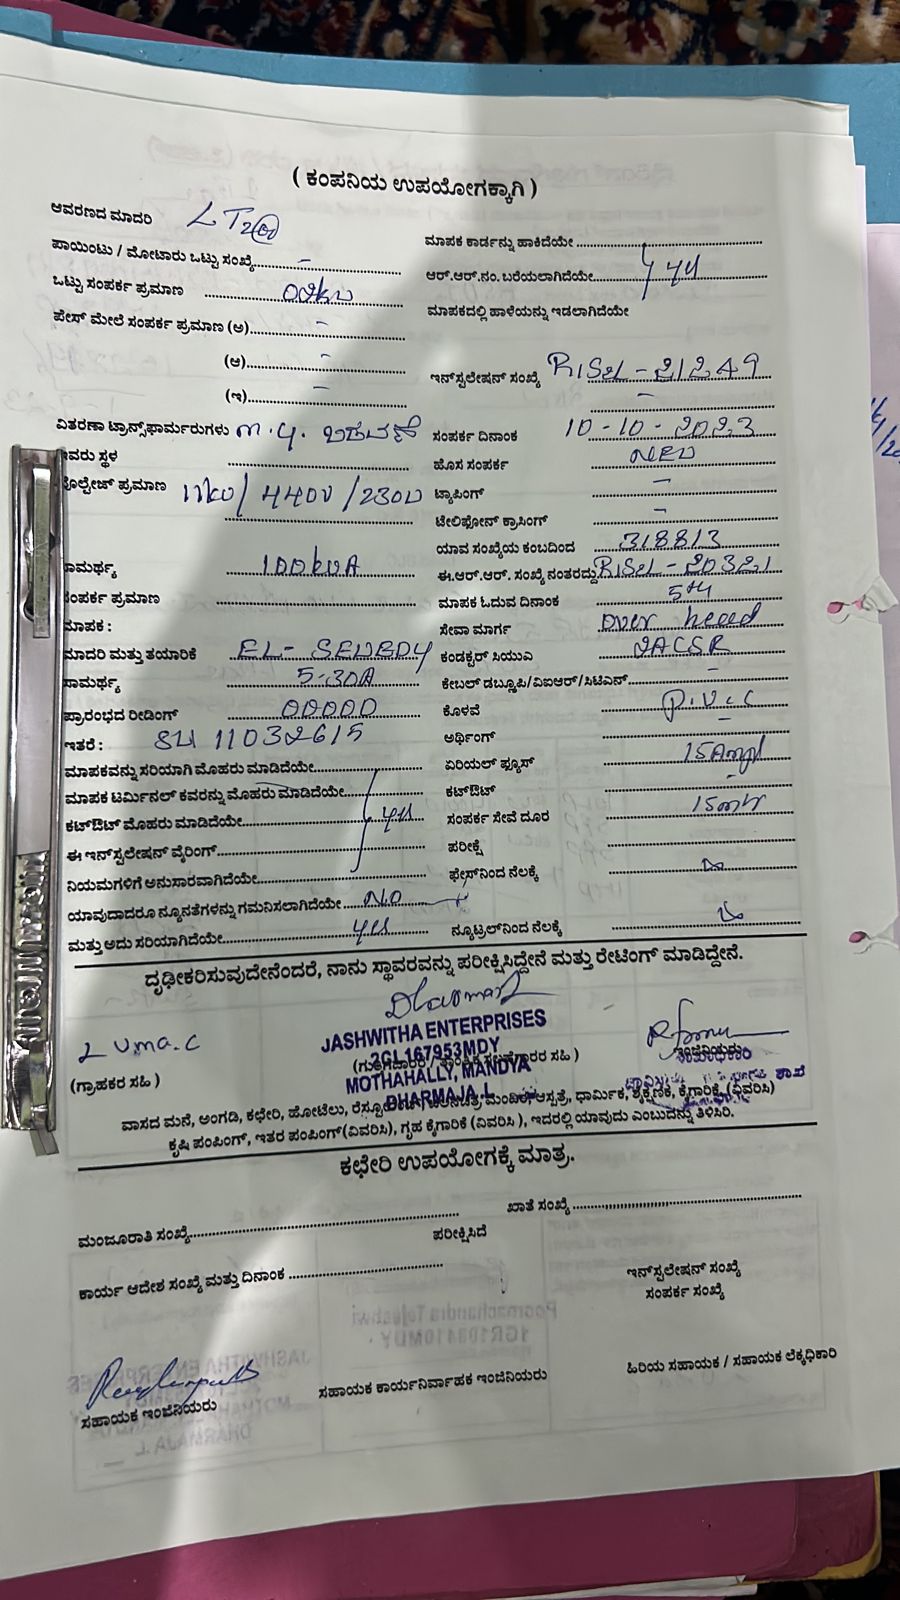 ( ಕಂಪನಿಯ ಉಪಯೋಗಕ್ಕಾಗಿ )
ಆವರಣದ ಮಾದರಿ LT2
ಪಾಯಿಂಟು / ಮೋಟಾರು ಒಟ್ಟು ಸಂಖ್ಯೆ -
ಒಟ್ಟು ಸಂಪರ್ಕ ಪ್ರಮಾಣ
ಪೇಸ್ ಮೇಲೆ ಸಂಪರ್ಕ ಪ್ರಮಾಣ (ಅ) -
(ಆ) -
(ಇ) -
ವಿತರಣಾ ಟ್ರಾನ್ಸ್‌ಫಾರ್ಮರುಗಳು
ಇವರು ಸ್ಥಳ
ವೋಲ್ಟೇಜ್ ಪ್ರಮಾಣ 11kv / 440v / 230v
ಸಾಮರ್ಥ್ಯ 100kvA
ಸಂಪರ್ಕ ಪ್ರಮಾಣ
ಮಾಪಕ :
ಮಾದರಿ ಮತ್ತು ತಯಾರಿಕೆ EL- SEWEDY
ಸಾಮರ್ಥ್ಯ 5-30A
ಪ್ರಾರಂಭದ ರೀಡಿಂಗ್ 00000
ಇತರೆ : 11032615
ಮಾಪಕವನ್ನು ಸರಿಯಾಗಿ ಮೊಹರು ಮಾಡಿದೆಯೇ
ಮಾಪಕ ಟರ್ಮಿನಲ್ ಕವರನ್ನು ಮೊಹರು ಮಾಡಿದೆಯೇ
ಕಟ್‌ಔಟ್ ಮೊಹರು ಮಾಡಿದೆಯೇ yes
ಈ ಇನ್‌ಸ್ಟಲೇಷನ್ ವೈರಿಂಗ್
ನಿಯಮಗಳಿಗೆ ಅನುಸಾರವಾಗಿದೆಯೇ
ಯಾವುದಾದರೂ ನ್ಯೂನತೆಗಳನ್ನು ಗಮನಿಸಲಾಗಿದೆಯೇ NO
ಮತ್ತು ಅದು ಸರಿಯಾಗಿದೆಯೇ yes
ಮಾಪಕ ಕಾರ್ಡನ್ನು ಹಾಕಿದೆಯೇ
ಆರ್.ಆರ್.ನಂ. ಬರೆಯಲಾಗಿದೆಯೇ yes
ಮಾಪಕದಲ್ಲಿ ಹಾಳೆಯನ್ನು ಇಡಲಾಗಿದೆಯೇ
ಇನ್‌ಸ್ಟಲೇಷನ್ ಸಂಖ್ಯೆ -21249
-
ಸಂಪರ್ಕ ದಿನಾಂಕ 10-10-2023
ಹೊಸ ಸಂಪರ್ಕ NEW
ಟ್ಯಾಪಿಂಗ್ -
ಟೇಲಿಫೋನ್ ಕ್ರಾಸಿಂಗ್ -
ಯಾವ ಸಂಖ್ಯೆಯ ಕಂಬದಿಂದ 318813
ಈ.ಆರ್.ಆರ್. ಸಂಖ್ಯೆ ನಂತರದ್ದು -20321
ಮಾಪಕ ಓದುವ ದಿನಾಂಕ 5th
ಸೇವಾ ಮಾರ್ಗ over head
ಕಂಡಕ್ಟರ್ ಸಿಯುಎ
ಕೇಬಲ್ ಡಬ್ಲೂಪಿ/ವಿಐಆರ್/ಸಿಟಿಎಸ್ -
ಕೊಳವೆ P.V.C
ಅರ್ಥಿಂಗ್ -
ಏರಿಯಲ್ ಫ್ಯೂಸ್ 15Amp
ಕಟ್‌ಔಟ್ -
ಸಂಪರ್ಕ ಸೇವೆ ದೂರ 15mtr
ಪರೀಕ್ಷೆ
ಫೇಸ್‌ನಿಂದ ನೆಲಕ್ಕೆ
ನ್ಯೂಟ್ರಲ್‌ನಿಂದ ನೆಲಕ್ಕೆ
ದೃಢೀಕರಿಸುವುದೇನೆಂದರೆ, ನಾನು ಸ್ಥಾವರವನ್ನು ಪರೀಕ್ಷಿಸಿದ್ದೇನೆ ಮತ್ತು ರೇಟಿಂಗ್ ಮಾಡಿದ್ದೇನೆ.
Uma.C
(ಗ್ರಾಹಕರ ಸಹಿ )
JASHWITHA ENTERPRISES
2GL167953MDY
MOTHAHALLY, MANDYA
DHARMAJA.L
ಇಂಜಿನಿಯರು
ವಾಸದ ಮನೆ, ಅಂಗಡಿ, ಕಛೇರಿ, ಹೋಟೆಲು, ಮಂದಿರ, ಆಸ್ಪತ್ರೆ, ಧಾರ್ಮಿಕ, ಶೈಕ್ಷಣಿಕ, ಕೈಗಾರಿಕೆ (ವಿವರಿಸಿ)
ಕೃಷಿ ಪಂಪಿಂಗ್, ಇತರ ಪಂಪಿಂಗ್(ವಿವರಿಸಿ), ಗೃಹ ಕೈಗಾರಿಕೆ (ವಿವರಿಸಿ ), ಇದರಲ್ಲಿ ಯಾವುದು ಎಂಬುದನ್ನು ತಿಳಿಸಿರಿ.
ಕಛೇರಿ ಉಪಯೋಗಕ್ಕೆ ಮಾತ್ರ.
ಮಂಜೂರಾತಿ ಸಂಖ್ಯೆ
ಖಾತೆ ಸಂಖ್ಯೆ
ಪರೀಕ್ಷಿಸಿದೆ
ಕಾರ್ಯ ಆದೇಶ ಸಂಖ್ಯೆ ಮತ್ತು ದಿನಾಂಕ
ಇನ್‌ಸ್ಟಲೇಷನ್ ಸಂಖ್ಯೆ
ಸಂಪರ್ಕ ಸಂಖ್ಯೆ
ಸಹಾಯಕ ಇಂಜಿನಿಯರು
ಸಹಾಯಕ ಕಾರ್ಯನಿರ್ವಾಹಕ ಇಂಜಿನಿಯರು
ಹಿರಿಯ ಸಹಾಯಕ / ಸಹಾಯಕ ಲೆಕ್ಕಧಿಕಾರಿ